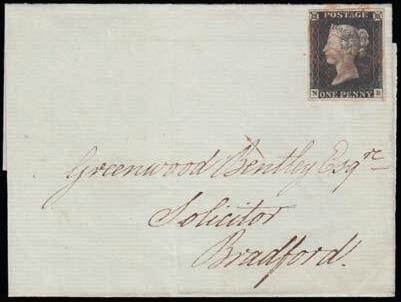 POSTAGE
N B
ONE PENNY
Greenwood Bentley Esqre
Solicitor
Bradford